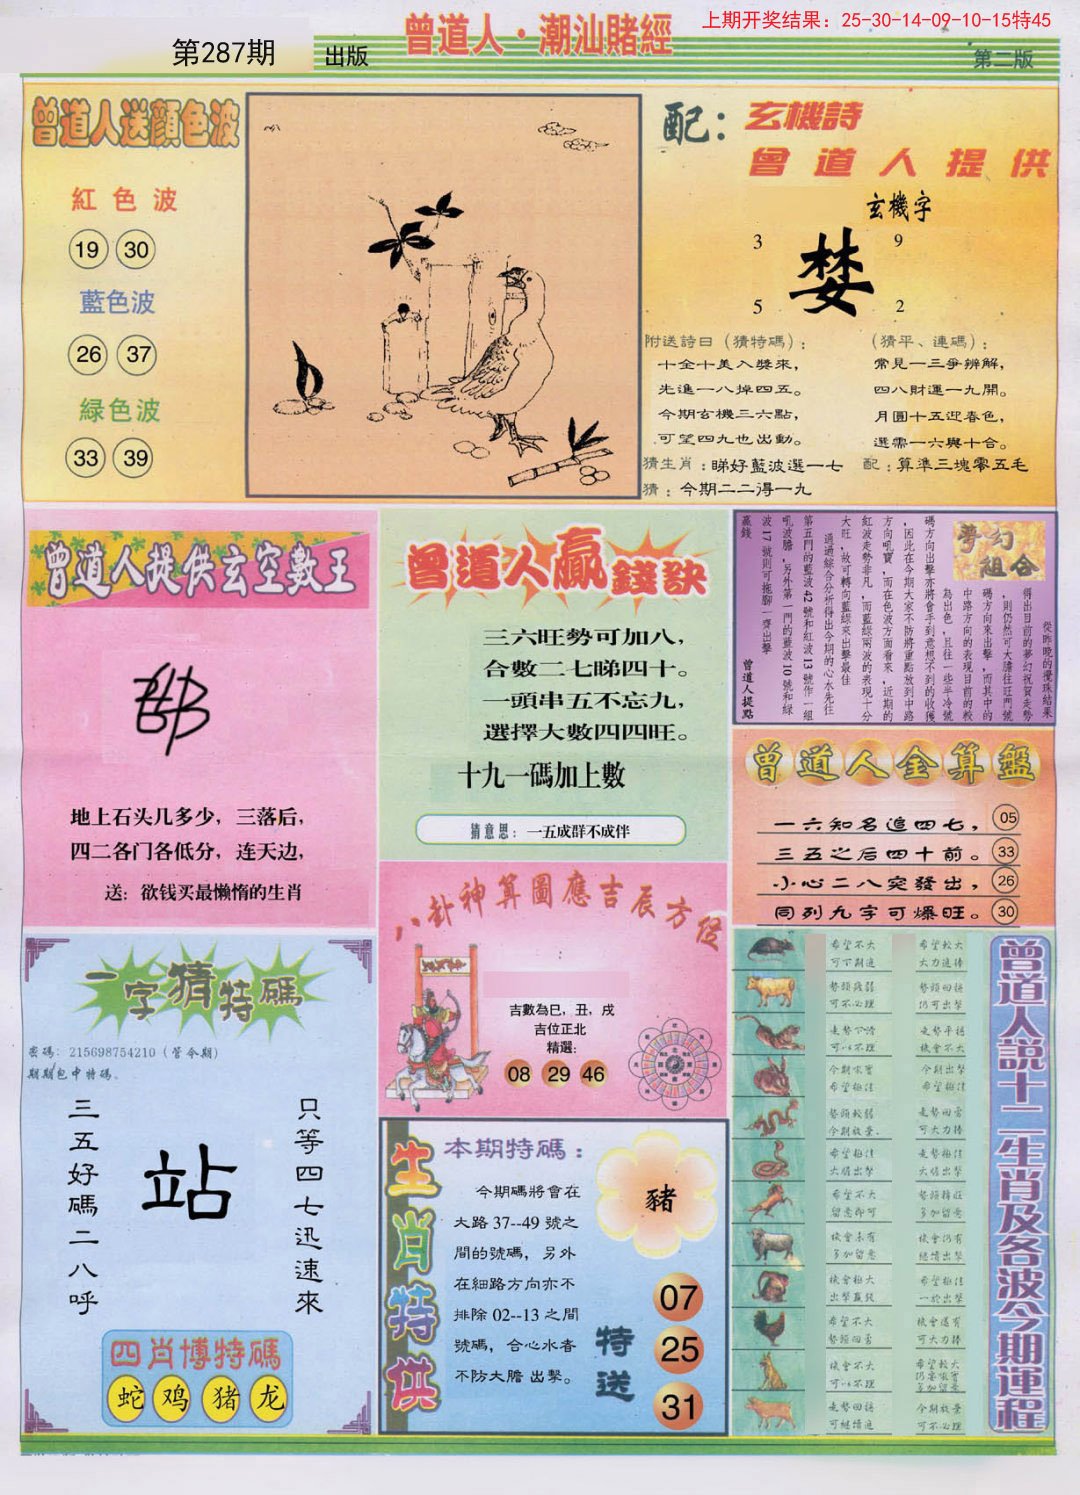 上期开奖结果：25-30-14-09-10-15特45
第287期
出版
曾道人·潮汕賭經
第二版
曾道人送顔色波
紅色波
19 30
藍色波
26 37
緑色波
33 39
配：玄機詩
曾道人提供
玄機字
3 9
婪
5 2
附送詩曰（猜特碼）：
十全十美入獎來，
先進一八掉四五。
今期玄機三六點，
可望四九也出動。
（猜平、連碼）：
常見一三爭辨解，
四八財運一九開。
月圓十五迎春色，
選需一六與十合。
猜生肖：睇好藍波選一七
配：算準三塊零五毛
猜：今期二二得一九
曾道人提供玄空數王
地上石头几多少，三落后，
四二各门各低分，连天边，
送：欲钱买最懒惰的生肖
曾道人贏錢訣
三六旺勢可加八，
合數二七睇四十。
一頭串五不忘九，
選擇大數四四旺。
十九一碼加上數
猜意思：一五成群不成伴
夢幻組合
從昨晚的攪珠結果
得出目前的夢幻祝賀走勢
，則仍然可大膽往旺門號
碼方向來出擊，而其中的
中路方向的表現目前的較
為出色，且往一些半冷號
碼方向出擊亦將會手到意想不到的收獲
，因此在今期大家不防將重點放到中路
方向吼寶，而在色波方面看來，近期的
紅波走勢非凡，而藍綠兩波的表現十分
大旺，故可轉向藍綠來出擊最佳
通過綜合分析得出今期的心水先往
第五門的藍波42號和紅波13號作一組
吼波膽，另外第一門的藍波10號和綠
波17號則可拖腳一齊出擊
贏錢
曾道人提點
曾道人金算盤
一六知名追四七， 05
三五之后四十前。 33
小心二八突發出， 26
同列九字可爆旺。 30
八卦神算圖應吉辰方位
吉數為巳，丑，戌
吉位正北
精選：
08 29 46
一字猜特碼
密碼：215698754210（管令期）
期期包中特碼、
三五好碼二八呼
站
只等四七迅速來
四肖博特碼
蛇 鸡 猪 龙
生肖特供
本期特碼：
今期碼將會在
大路37--49號之
間的號碼，另外
在細路方向亦不
排除02--13之間
號碼，合心水者
不防大膽出擊。
豬
特送
07
25
31
曾道人說十二生肖及各波今期運程
希望不大
希望較大
大力追捧
可不必理
仍可出擊
機會不大
今期出擊
希望極佳
可大力捧
大膽出擊
希望不大
留意即可
多加留意
機會極大
出擊贏錢
希望極佳
希望不大
機會還有
可大力捧
機會不大
希望較大
可繼續追
今期放棄
可不必理